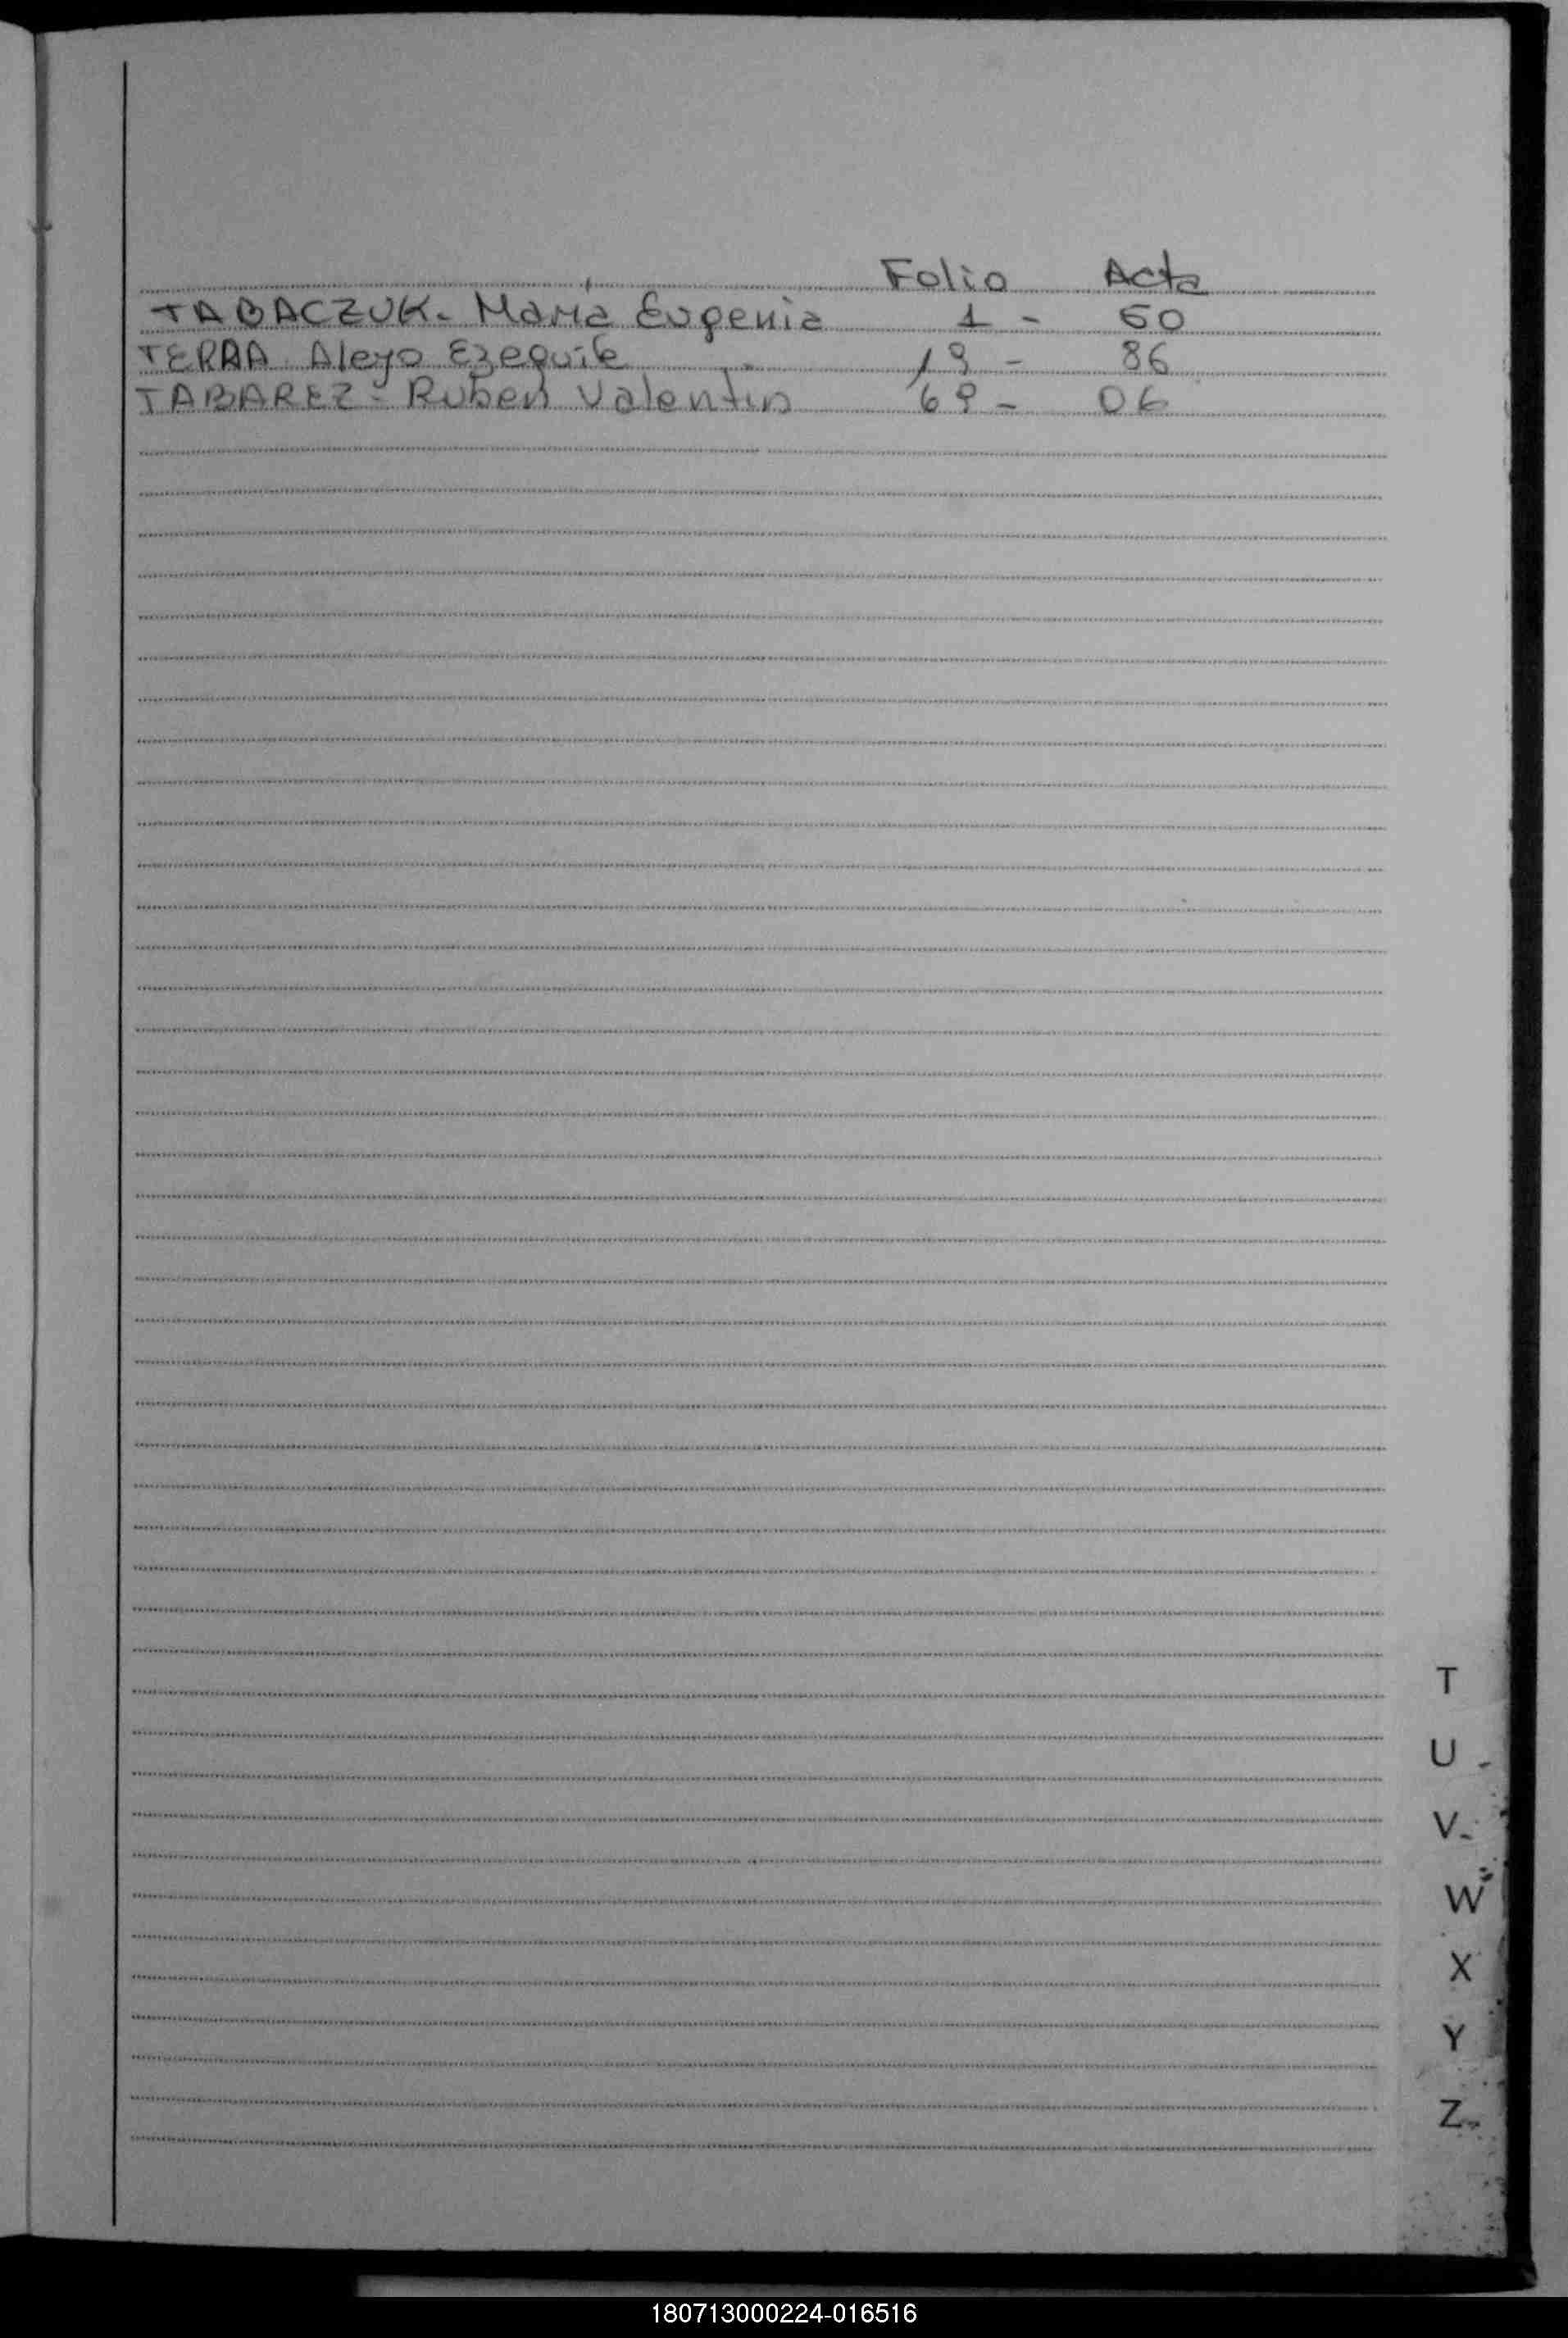 Folio Acta
TABACZUK. María Eugenia 1 - 50
TERRA Aleyo Ezequiel 19 - 86
TABAREZ - Ruben Valentin 69 - 06
T
U
V
W
X
Y
Z
180713000224-016516